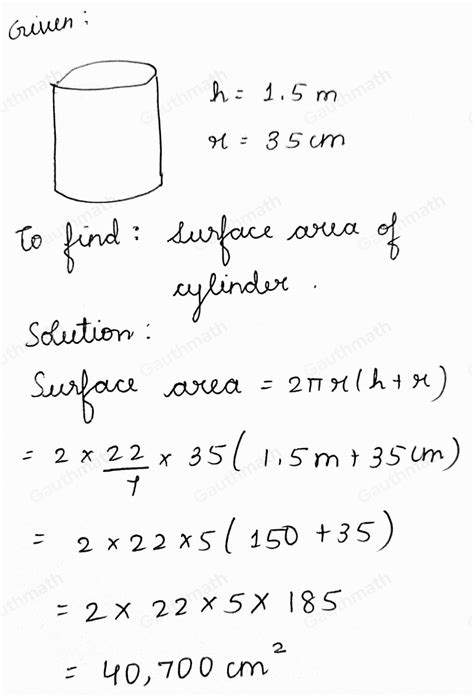 Given :
h = 1.5 m
r = 35 cm
To find : surface area of
cylinder .
Solution :
Surface area = 2πr(h+r)
= 2 × 22/7 × 35( 1.5m + 35cm)
= 2 × 22 × 5( 150 + 35)
= 2 × 22 × 5 × 185
= 40,700 cm²
Gauthmath